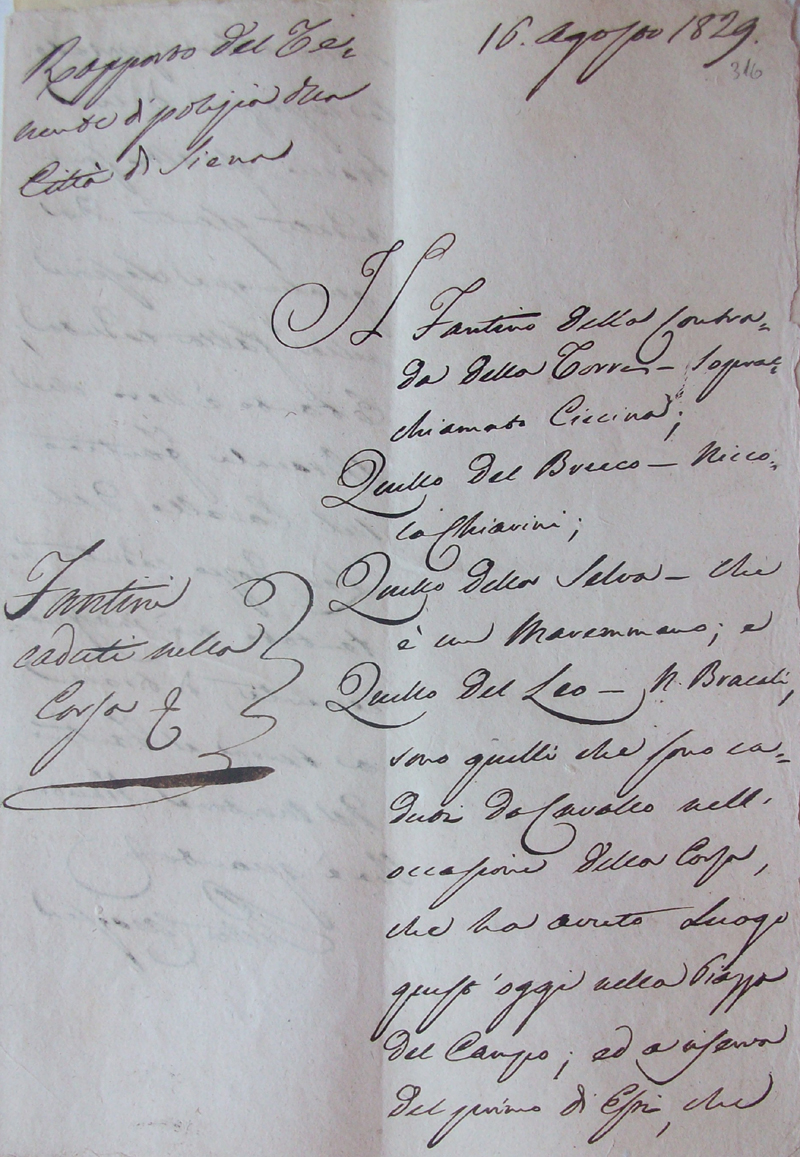 Rapporto del Te=
nente di polizia della
Città di Siena
16. Agosto 1829.
316
Il Fantino della Contra=
da della Torre — Sopra=
chiamato Ciccina;
Quello del Bruco — Nicco=
lò Chiarini;
Quello della Selva — che
è un Maremmano; e
Quello del Leo — N. Bracali,
sono quelli che sono ca=
duti da Cavallo nell'
occasione della Corsa,
che ha avuto Luogo
quest'oggi nella Piazza
del Campo; ed a riserva
del primo di Essi, che
Fantini
caduti nella
Corsa